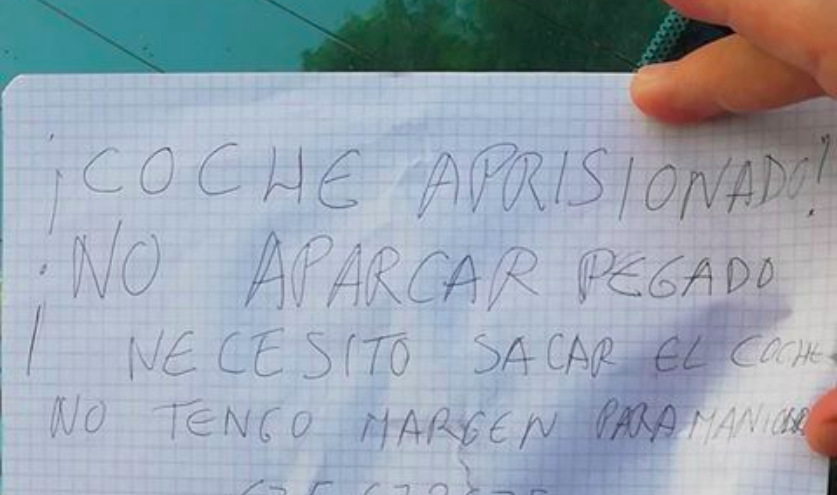 ¡COCHE APRISIONADO!
¡NO APARCAR PEGADO
NECESITO SACAR EL COCHE
NO TENGO MARGEN PARA